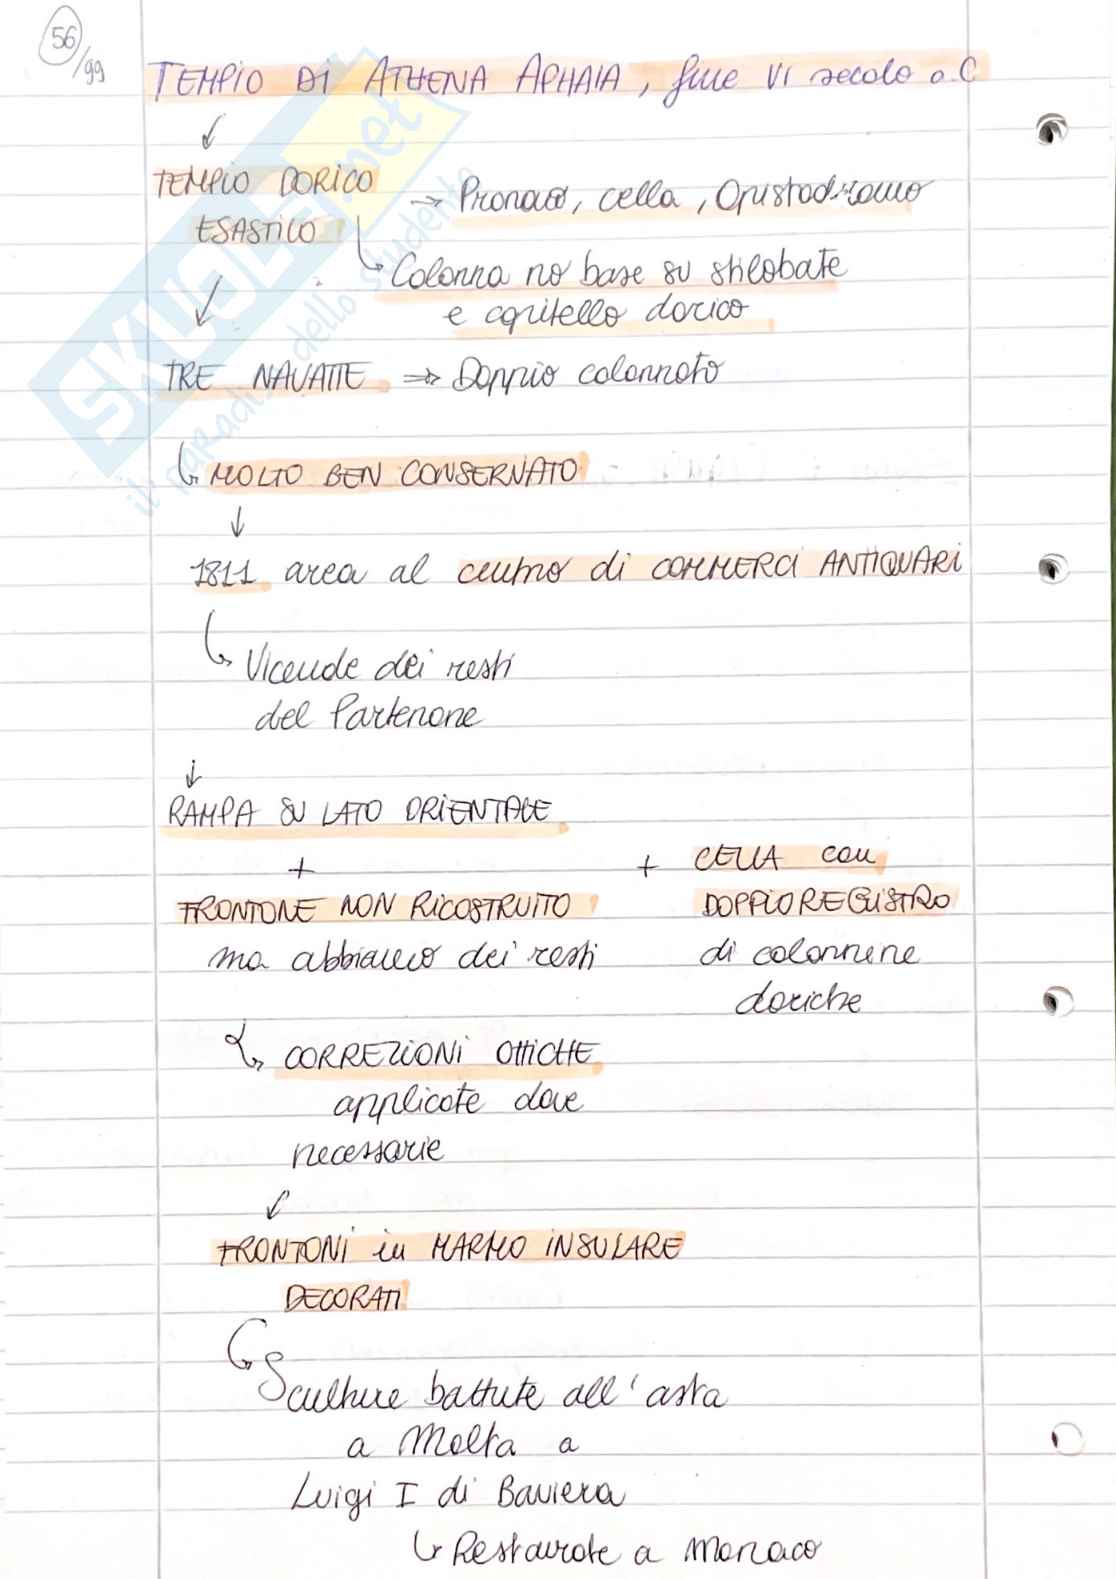 56/99
TEMPIO Di ATHENA APHAIA, fine VI secolo a.C
TEMPIO DORICO
→ Pronao, cella, Opistodromo
ESASTILO
Colonna no base su stilobate
e capitello dorico
TRE NAVATE ⇒ Doppio colonnato
MOLTO BEN CONSERVATO
1811 area al centro di COMMERCI ANTIQUARi
Vicende dei resti
del Partenone
RAMPA SU LATO ORIENTALE
+ + CELLA con
FRONTONE NON RICOSTRUITO DOPPIO REGISTRO
ma abbiamo dei resti di colonnine
doriche
CORREZIONi OTTICHE
applicate dove
necessarie
FRONTONi in MARMO iNSULARE
DECORATI
Sculture battute all'asta
a Malta a
Luigi I di Baviera
Restaurate a Monaco
SKUOLA.net
il paradiso dello studente